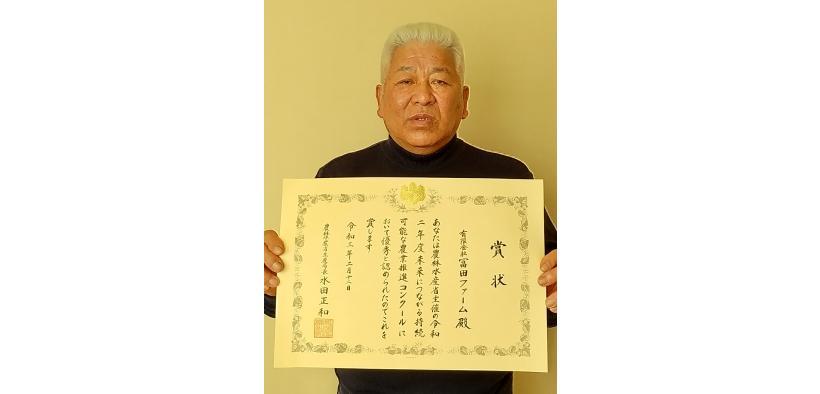 賞状
有限会社冨田ファーム殿
あなたは農林水産省主催の令和
二年度未来につながる持続
可能な農業推進コンクールに
おいて優秀と認められたのでこれを
賞します
令和三年三月十二日
農林水産省生産局長 水田正和